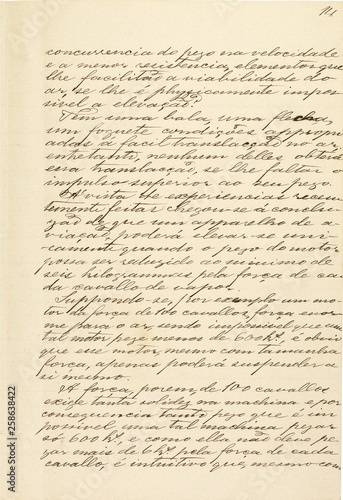 14
concurrencia do pezo na velocidade
e a menor resistencia, elementos que
lhe facilitão a viabilidade do
ar, se lhe é physicamente impos-
sivel a elevação?
Tem uma bala, uma flecha,
um foguete condições appropri-
adas á facil translacção no ar,
entretanto, nenhum delles obterá
essa translacção, se lhe faltar o
impulso superior ao seu pezo.
A' vista de experiencias recen-
temente feitas chegou-se á conclu-
zão de que um apparelho de a-
viação poderá elevar-se uni-
camente quando o pezo do motor
possa ser reduzido ao minimo de
seis kilogrammas pela força de ca-
da cavallo de vapor.
Suppondo-se, por exemplo um mo-
tor da força de 100 cavallos, força enor-
me para o ar, sendo impossivel que um
tal motor peze menos de 600 k.ˢ, é obvio
que esse motor, mesmo com tamanha
força, apenas poderá suspender a
si mesmo.
A força, porem, de 100 cavallos
exige tanta solidez na machina e por
consequencia tanto pezo que é im-
possivel uma tal machina pezar
só 600 k.ˢ, e como ella não deve pe-
zar mais de 6 k.ˢ pela força de cada
cavallo, é intuitivo que, mesmo com